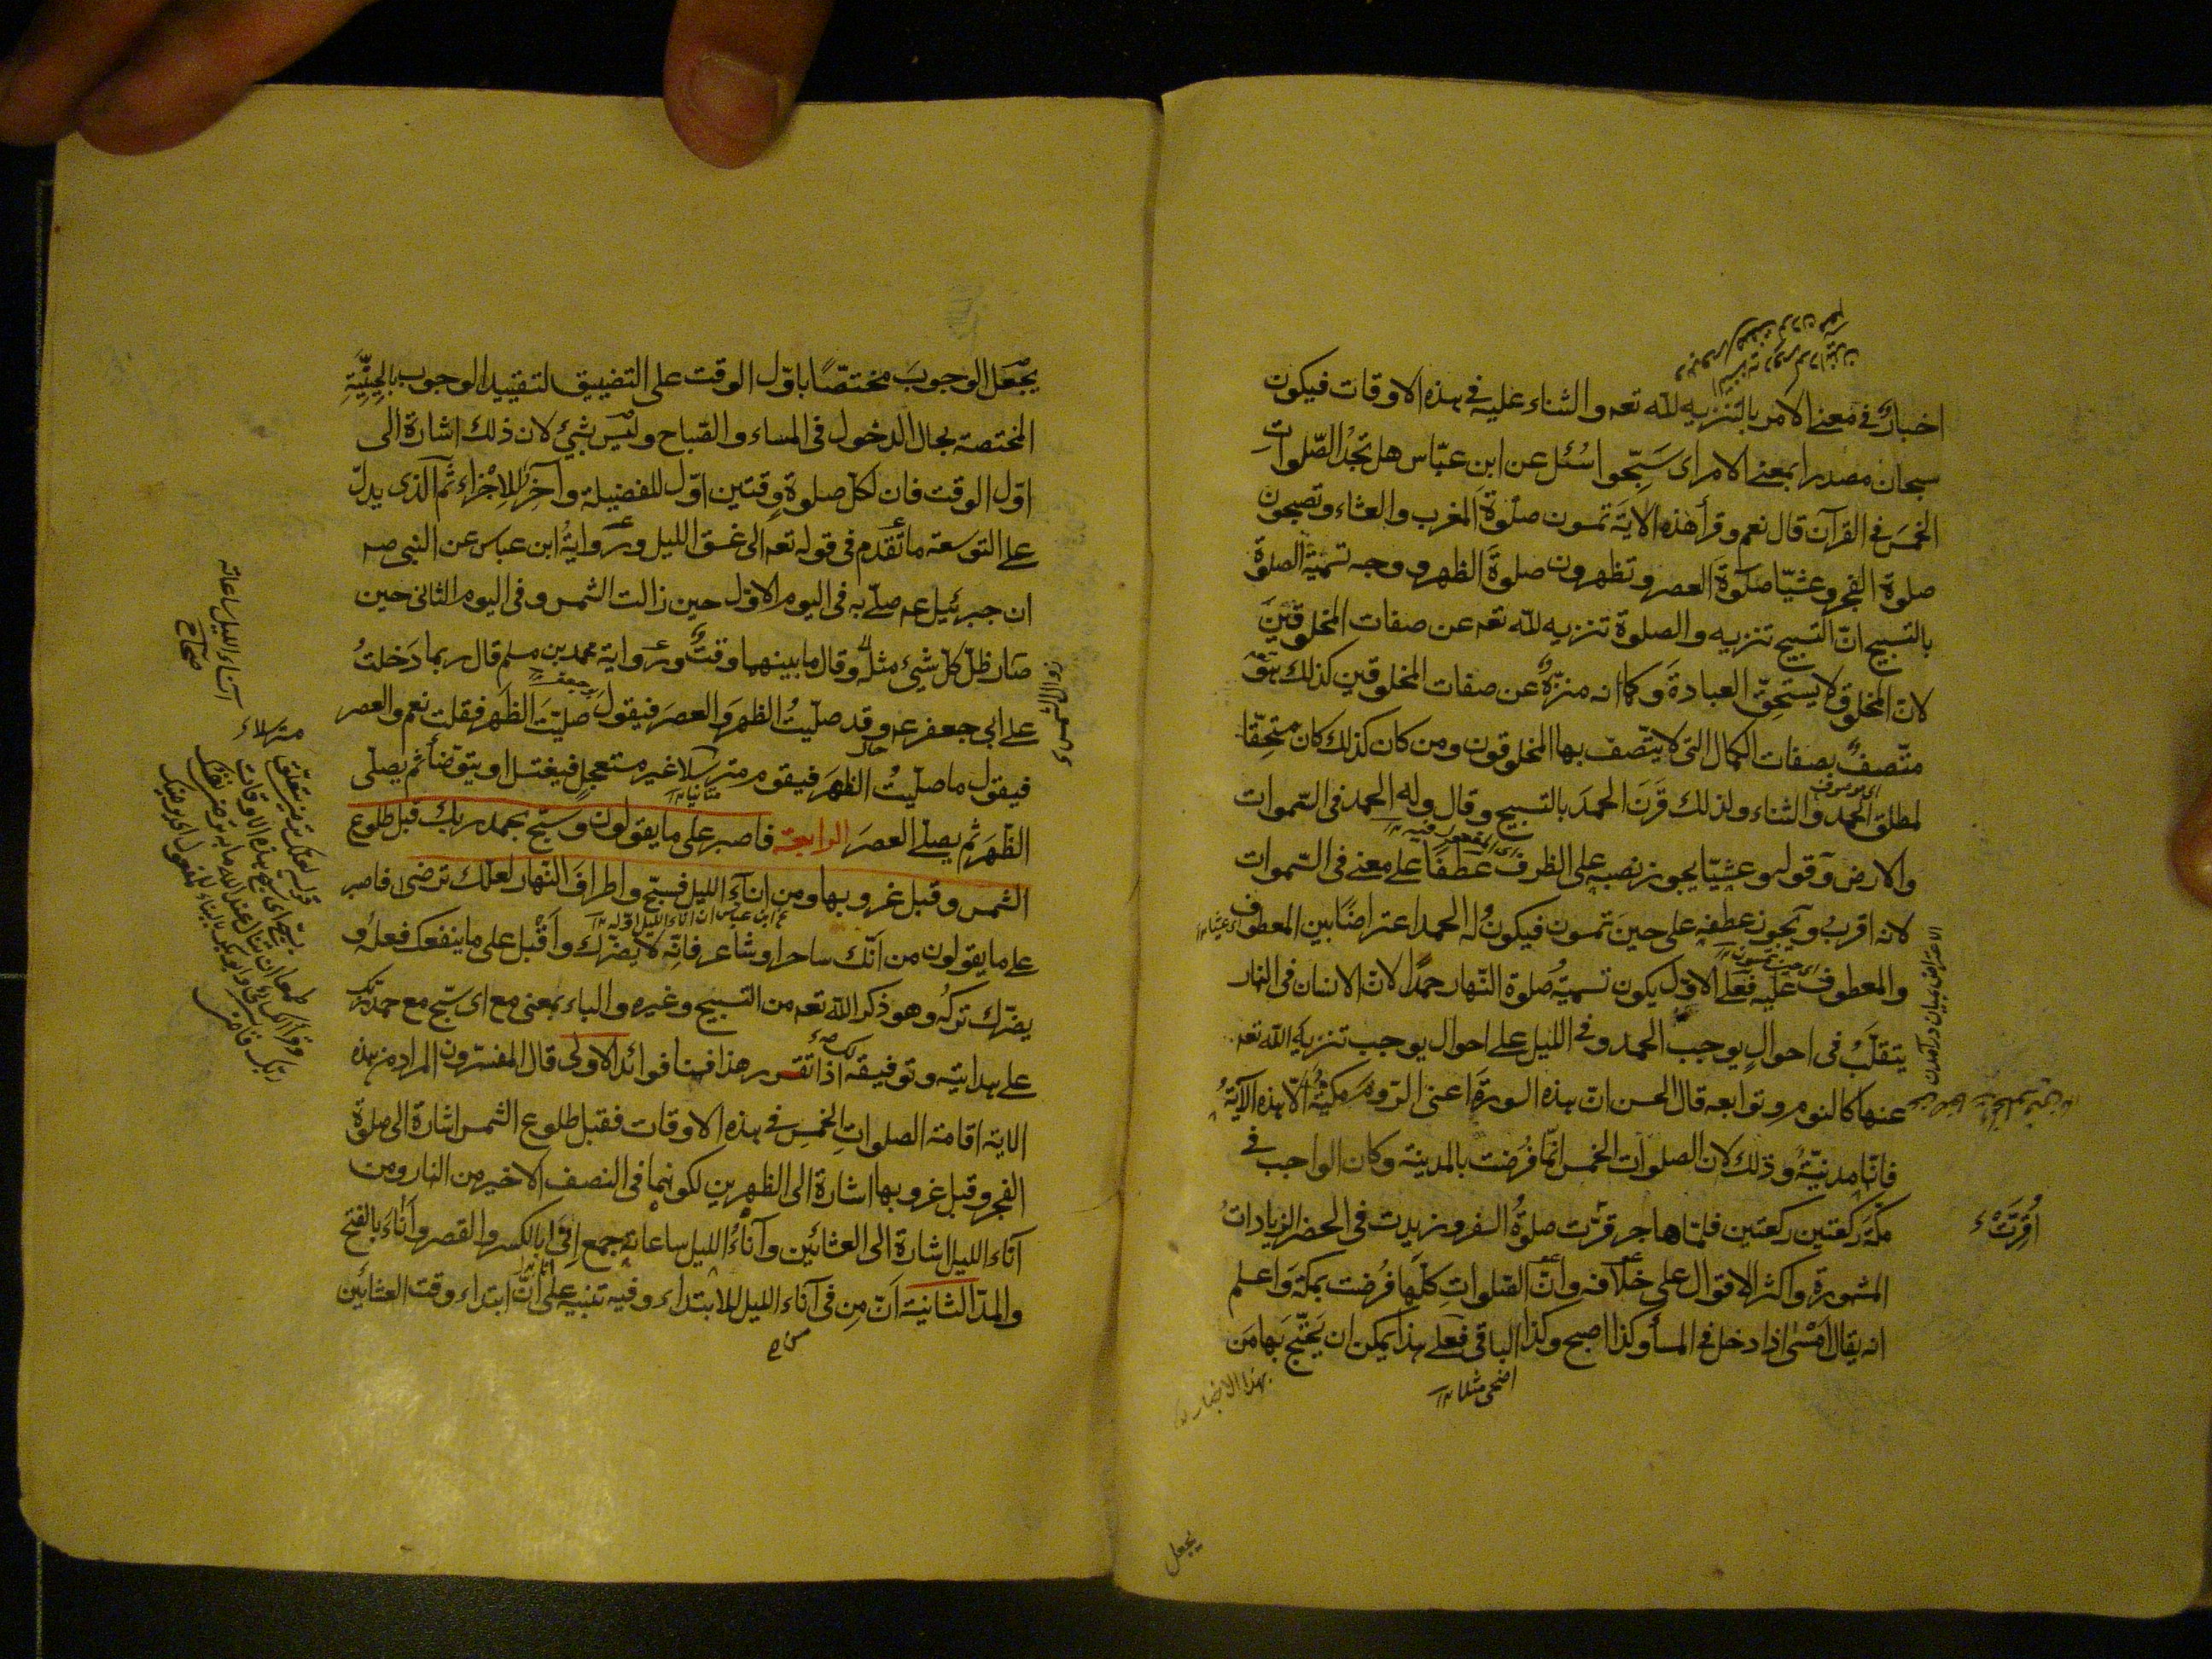 اخبارٌ فى معنى الامر بالتنزيه لله تعه والثناء عليه فى هذه الاوقات فيكون
سبحان مصدرا بمعنى الامر اى سَبِّحوا سُئل عن ابن عبّاس هل تجدُ الصّلوات
الخمسَ فى القرآن قال نعم وقرأ هذه الاية تمسون صلوةَ المغرب والعشاء وتصبحون
صلوة الفجر وعشيّا صلوةَ العصر وتظهرون صلوةَ الظهر ووجه تسمية الصلوة
بالتسبيح انّ التسبيح تنزيه والصلوة تنزيه لله تعه عن صفات المخلوقين
لان المخلوق لا يستحقّ العبادةَ وكما انه منزّهٌ عن صفات المخلوقين كذلك هو
متّصفٌ بصفات الكمال التى لا يتّصف بها المخلوقون ومن كان كذلك كان مستحِقّا
لمطلق الحمد والثناء ولذلك قَرَنَ الحمدَ بالتسبيح وقال وله الحمد فى السّموات
والارض وقوله وعشيّا يجوز نصبه على الظرف عَطفًا على معنى فى السّموات
اى المفعول فيه ١٢
لانه اقربُ ويجوز عطفه على حينَ تمسون فيكون له الحمد اعتراضًا بين المعطوف
اى عشيا ١٢
والمعطوف عليه فعلى الاوّل يكون تسميةُ صلوة النّهار حمدًا لانّ الانسان فى النهار
اى حين تمسون ١٢
يتقلّبُ فى احوالٍ يوجب الحمد وفى الليل على احوال يوجب تنزيهَ الله تعه
عنها كالنوم وتوابعه قال الحسن انّ هذه السورةَ اعنى الرّوم مكيّةٌ الّا هذه الآيةُ
فانّها مدنيّةٌ وذلك لان الصلوات الخمس انّما فُرضت بالمدينة وكان الواجب فى
مكّة ركعتين ركعتين فلمّا هاجر قرّت صلوةُ السفر وزيدت فى الحضر الزياداتُ
اُقِرَّتْ
المشهورة واكثر الاقوال على خلافه وانّ الصّلواتِ كلّها فُرضت بمكة واعلم
انه يقال اَمْسٰى اذا دخل فى المسأ وكذا اصبح وكذا الباقى فعلى هذا يمكن ان يَحتجّ بها مَن
اضحى مثلا ١٢
بهذا الاخبار
يجعل
يَجْعَل الوجوبَ مختصًّا باوّل الوقت على التضييق لتقييد الوجوب بالحِينِيَّةِ
المختصة بحال الدخول فى المساء والصّباح وليس بشيئ لان ذلك اشارة الى
اوّل الوقت فان لكلّ صلوة وقتين اوّل للفضيلة وآخرَ للاِجْزاء ثم الذى يدلّ
على التوسعة ما تقدم فى قوله تعه الى غسق الليل وروايةُ ابن عباس عن النبى صه
ان جبرئيل عه صلّى به فى اليوم الاوّل حين زالت الشمس وفى اليوم الثانى حين
صار ظلّ كلّ شيئ مثلَه وقال ما بينهما وقتٌ ورواية محمد بن مسلم قال ربما دَخلتُ
على ابى جعفر عه وقد صلّيتُ الظهرَ والعصرَ فيقول صلّيتَ الظهر فقلت نعم والعصر
فيقول ما صلّيتُ الظهرَ فيقوم مترسّلا غير مستعجل فيغتسل او يتوضّأ ثم يصلى
متأنيا ١٢
الظّهرَ ثم يصلّى العصرَ الرابعة فاصبر على ما يقولون وسبّح بحمد ربك قبل طلوع
الشمس وقبل غروبها ومن اناءِ الليل فسبّح واطرافَ النّهار لعلّك ترضى فاصبر
ابن عباس ان اناء الليل اوله ١٢
على ما يقولون من انّك ساحر او شاعر فانّه لا يضرّك وأَقْبل على ما ينفعك فعلُه و
يضرّك تركُه وهو ذكر الله تعه من التسبيح وغيره والباء بمعنى مع اى سبّح مع حمد ربّك
على هدايته وتوفيقه اذا تقرر هذا فهنا فوائد الاولى قال المفسّرون المراد من هذه
الاية اقامة الصلواتِ الخمسِ فى هذه الاوقات فقبل طلوع الشمس اشارة الى صلوة
الفجر وقبل غروبها اشارة الى الظهرين لكونهما فى النصف الاخير من النهار ومن
آناء الليل اشارة الى العشائين وآناءُ الليل ساعاته جمع اِنًى بالكسر والقصر واَناء بالفتح
والمدّ الثانية اَنّ مِن فى آناء الليل للابتداء وفيه تنبيه على انّ ابتداء وقت العشائين
آناء الليل ساعاته
صحاح